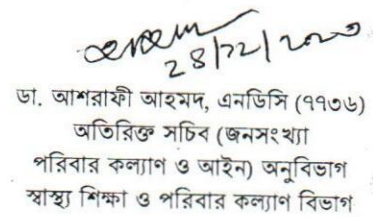 ২৪/১২/২০২৩
ডা. আশরাফী আহমদ, এনডিসি (৭৭৩৬)
অতিরিক্ত সচিব (জনসংখ্যা
পরিবার কল্যাণ ও আইন) অনুবিভাগ
স্বাস্থ্য শিক্ষা ও পরিবার কল্যাণ বিভাগ